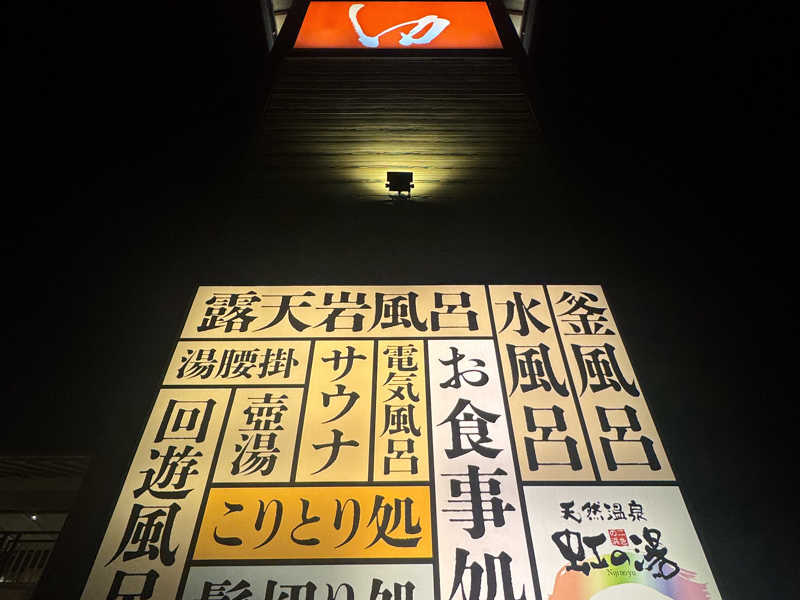 ゆ
露天岩風呂
水風呂
釜風呂
湯腰掛
サウナ
電気風呂
お食事処
壺湯
回遊風呂
こりとり処
髪切り処
天然温泉
虹の湯
Nijinoyu